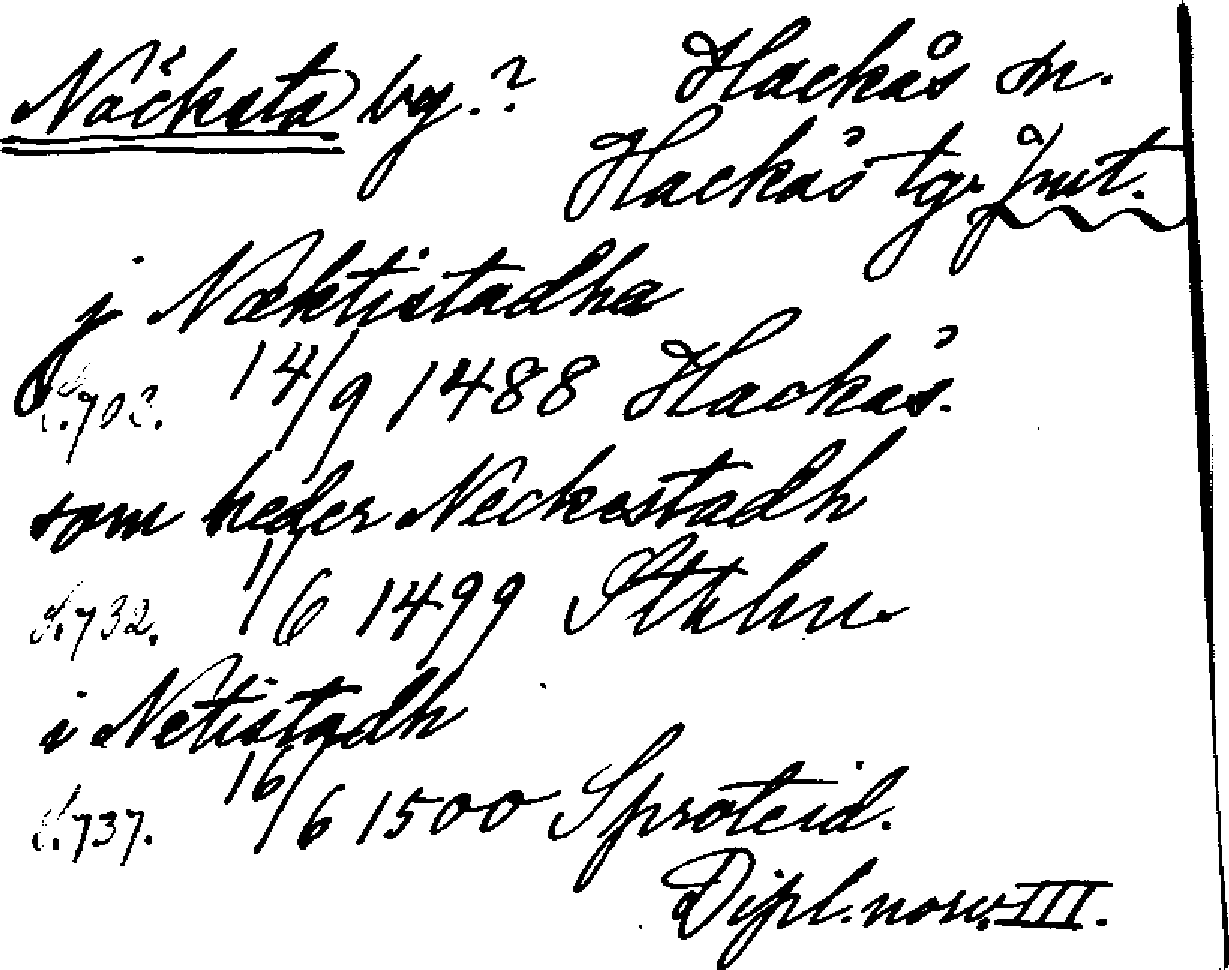 Näcksta by.? Hackås sn.
Hackås tg. Jmt.
j Næktistadha
S. 702. 14/9 1488 Hackås.
som heder Neckestadh
S. 732. 1/6 1499 Sthlm.
i Netistadh
S. 737. 16/6 1500 Sproteid.
Dipl. norv. III.